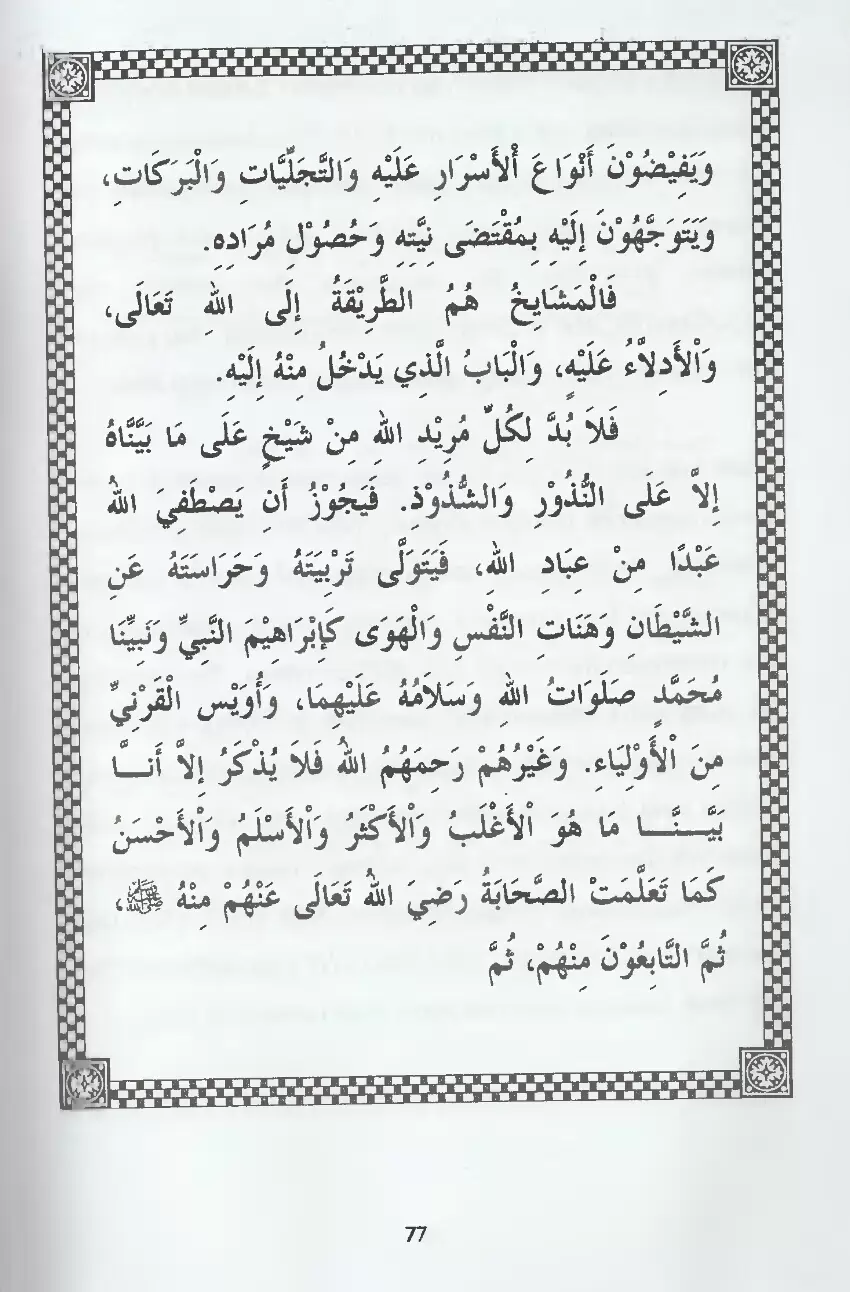 وَيَفِيْضُوْنَ أَنْوَاعَ اْلأَسْرَارِ عَلَيْهِ وَالتَّجَلِّيَّاتِ وَالْبَرَكَاتِ،
وَيَتَوَجَّهُوْنَ إِلَيْهِ بِمُقْتَضَى نِيَّتِهِ وَحُصُوْلِ مُرَادِهِ.
فَالْمَشَايِخُ هُمُ الطَّرِيْقَةُ إِلَى اللهِ تَعَالَى،
وَاْلأَدِلاَّءُ عَلَيْهِ، وَالْبَابُ الَّذِي يَدْخُلُ مِنْهُ إِلَيْهِ.
فَلاَ بُدَّ لِكُلِّ مُرِيْدِ اللهِ مِنْ شَيْخٍ عَلَى مَا بَيَّنَّاهُ
إِلاَّ عَلَى النُّذُوْرِ وَالشُّذُوْذِ. فَيَجُوْزُ أَنِ يَصْطَفِيَ اللهُ
عَبْدًا مِنْ عِبَادِ اللهِ، فَيَتَوَلَّى تَرْبِيَتَهُ وَحَرَاسَتَهُ عَنِ
الشَّيْطَانِ وَهَنَاتِ النَّفْسِ وَالْهَوَى كَإِبْرَاهِيْمَ النَّبِيِّ وَنَبِيِّنَا
مُحَمَّدٍ صَلَوَاتُ اللهِ وَسَلاَمُهُ عَلَيْهِمَا، وَأُوَيْسِ الْقَرْنِيِّ
مِنَ اْلأَوْلِيَاءِ. وَغَيْرُهُمْ رَحِمَهُمُ اللهُ فَلاَ يُذْكَرُ إِلاَّ أَنـــاَّ
بَيَّـــنَّـــا مَا هُوَ اْلأَغْلَبُ وَاْلأَكْثَرُ وَاْلأَسْلَمُ وَاْلأَحْسَنُ
كَمَا تَعَلَّمَتْ الصَّحَابَةُ رَضِيَ اللهُ تَعَالَى عَنْهُمْ مِنْهُ ﷺ،
ثُمَّ التَّابِعُوْنَ مِنْهُمْ، ثُمَّ
77